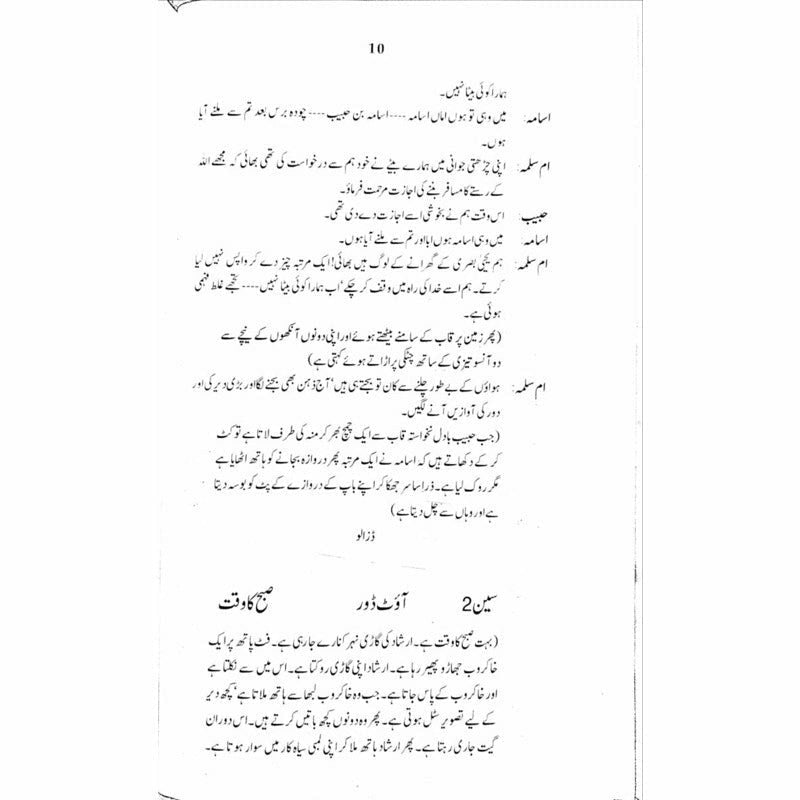 10
ہمارا کوئی بیٹا نہیں۔
اسامہ: میں وہی تو ہوں اماں اسامہ ---- اسامہ بن حبیب ---- چودہ برس بعد تم سے ملنے آیا
ہوں۔
ام سلمہ: اپنی چڑھتی جوانی میں ہمارے بیٹے نے خود ہم سے درخواست کی تھی بھائی کہ مجھے اللہ
کے رستے کا مسافر بننے کی اجازت مرحمت فرماؤ۔
حبیب: اس وقت ہم نے بخوشی اسے اجازت دے دی تھی۔
اسامہ: میں وہی اسامہ ہوں ابا اور تم سے ملنے آیا ہوں۔
ام سلمہ: ہم یحییٰ بصری کے گھرانے کے لوگ ہیں بھائی! ایک مرتبہ چیز دے کر واپس نہیں لیا
کرتے۔ ہم اسے خدا کی راہ میں وقف کر چکے‘ اب ہمارا کوئی بیٹا نہیں ---- تجھے غلط فہمی
ہوئی ہے۔
(پھر زمین پر قاب کے سامنے بیٹھتے ہوئے اور اپنی دونوں آنکھوں کے نیچے سے
دو آنسو تیزی کے ساتھ چٹکی پر اڑاتے ہوئے کہتی ہے)
ام سلمہ: ہواؤں کے بے طور چلنے سے کان تو بجتے ہی ہیں‘ آج ذہن بھی بجنے لگا اور بڑی دیر کی اور
دور کی آوازیں آنے لگیں۔
(جب حبیب بادل نخواستہ قاب سے ایک چمچ بھر کر منہ کی طرف لاتا ہے تو کٹ
کر کے دکھاتے ہیں کہ اسامہ نے ایک مرتبہ پھر دروازہ بجانے کو ہاتھ اٹھایا ہے
مگر روک لیا ہے۔ ذرا سا سر جھکا کر اپنے باپ کے دروازے کے پٹ کو بوسہ دیتا
ہے اور وہاں سے چل دیتا ہے)
ڈزالو
سین 2 آؤٹ ڈور صبح کا وقت
(بہت صبح کا وقت ہے۔ ارشاد کی گاڑی نہر کنارے جا رہی ہے۔ فٹ پاتھ پر ایک
خاکروب جھاڑو پھیر رہا ہے۔ ارشاد اپنی گاڑی روکتا ہے۔ اس میں سے نکلتا ہے
اور خاکروب کے پاس جاتا ہے۔ جب وہ خاکروب لبھا سے ہاتھ ملاتا ہے‘ کچھ دیر
کے لیے تصویر سٹل ہوتی ہے۔ پھر وہ دونوں کچھ باتیں کرتے ہیں۔ اس دوران
گیت جاری رہتا ہے۔ پھر ارشاد ہاتھ ملا کر اپنی لمبی سیاہ کار میں سوار ہوتا ہے۔